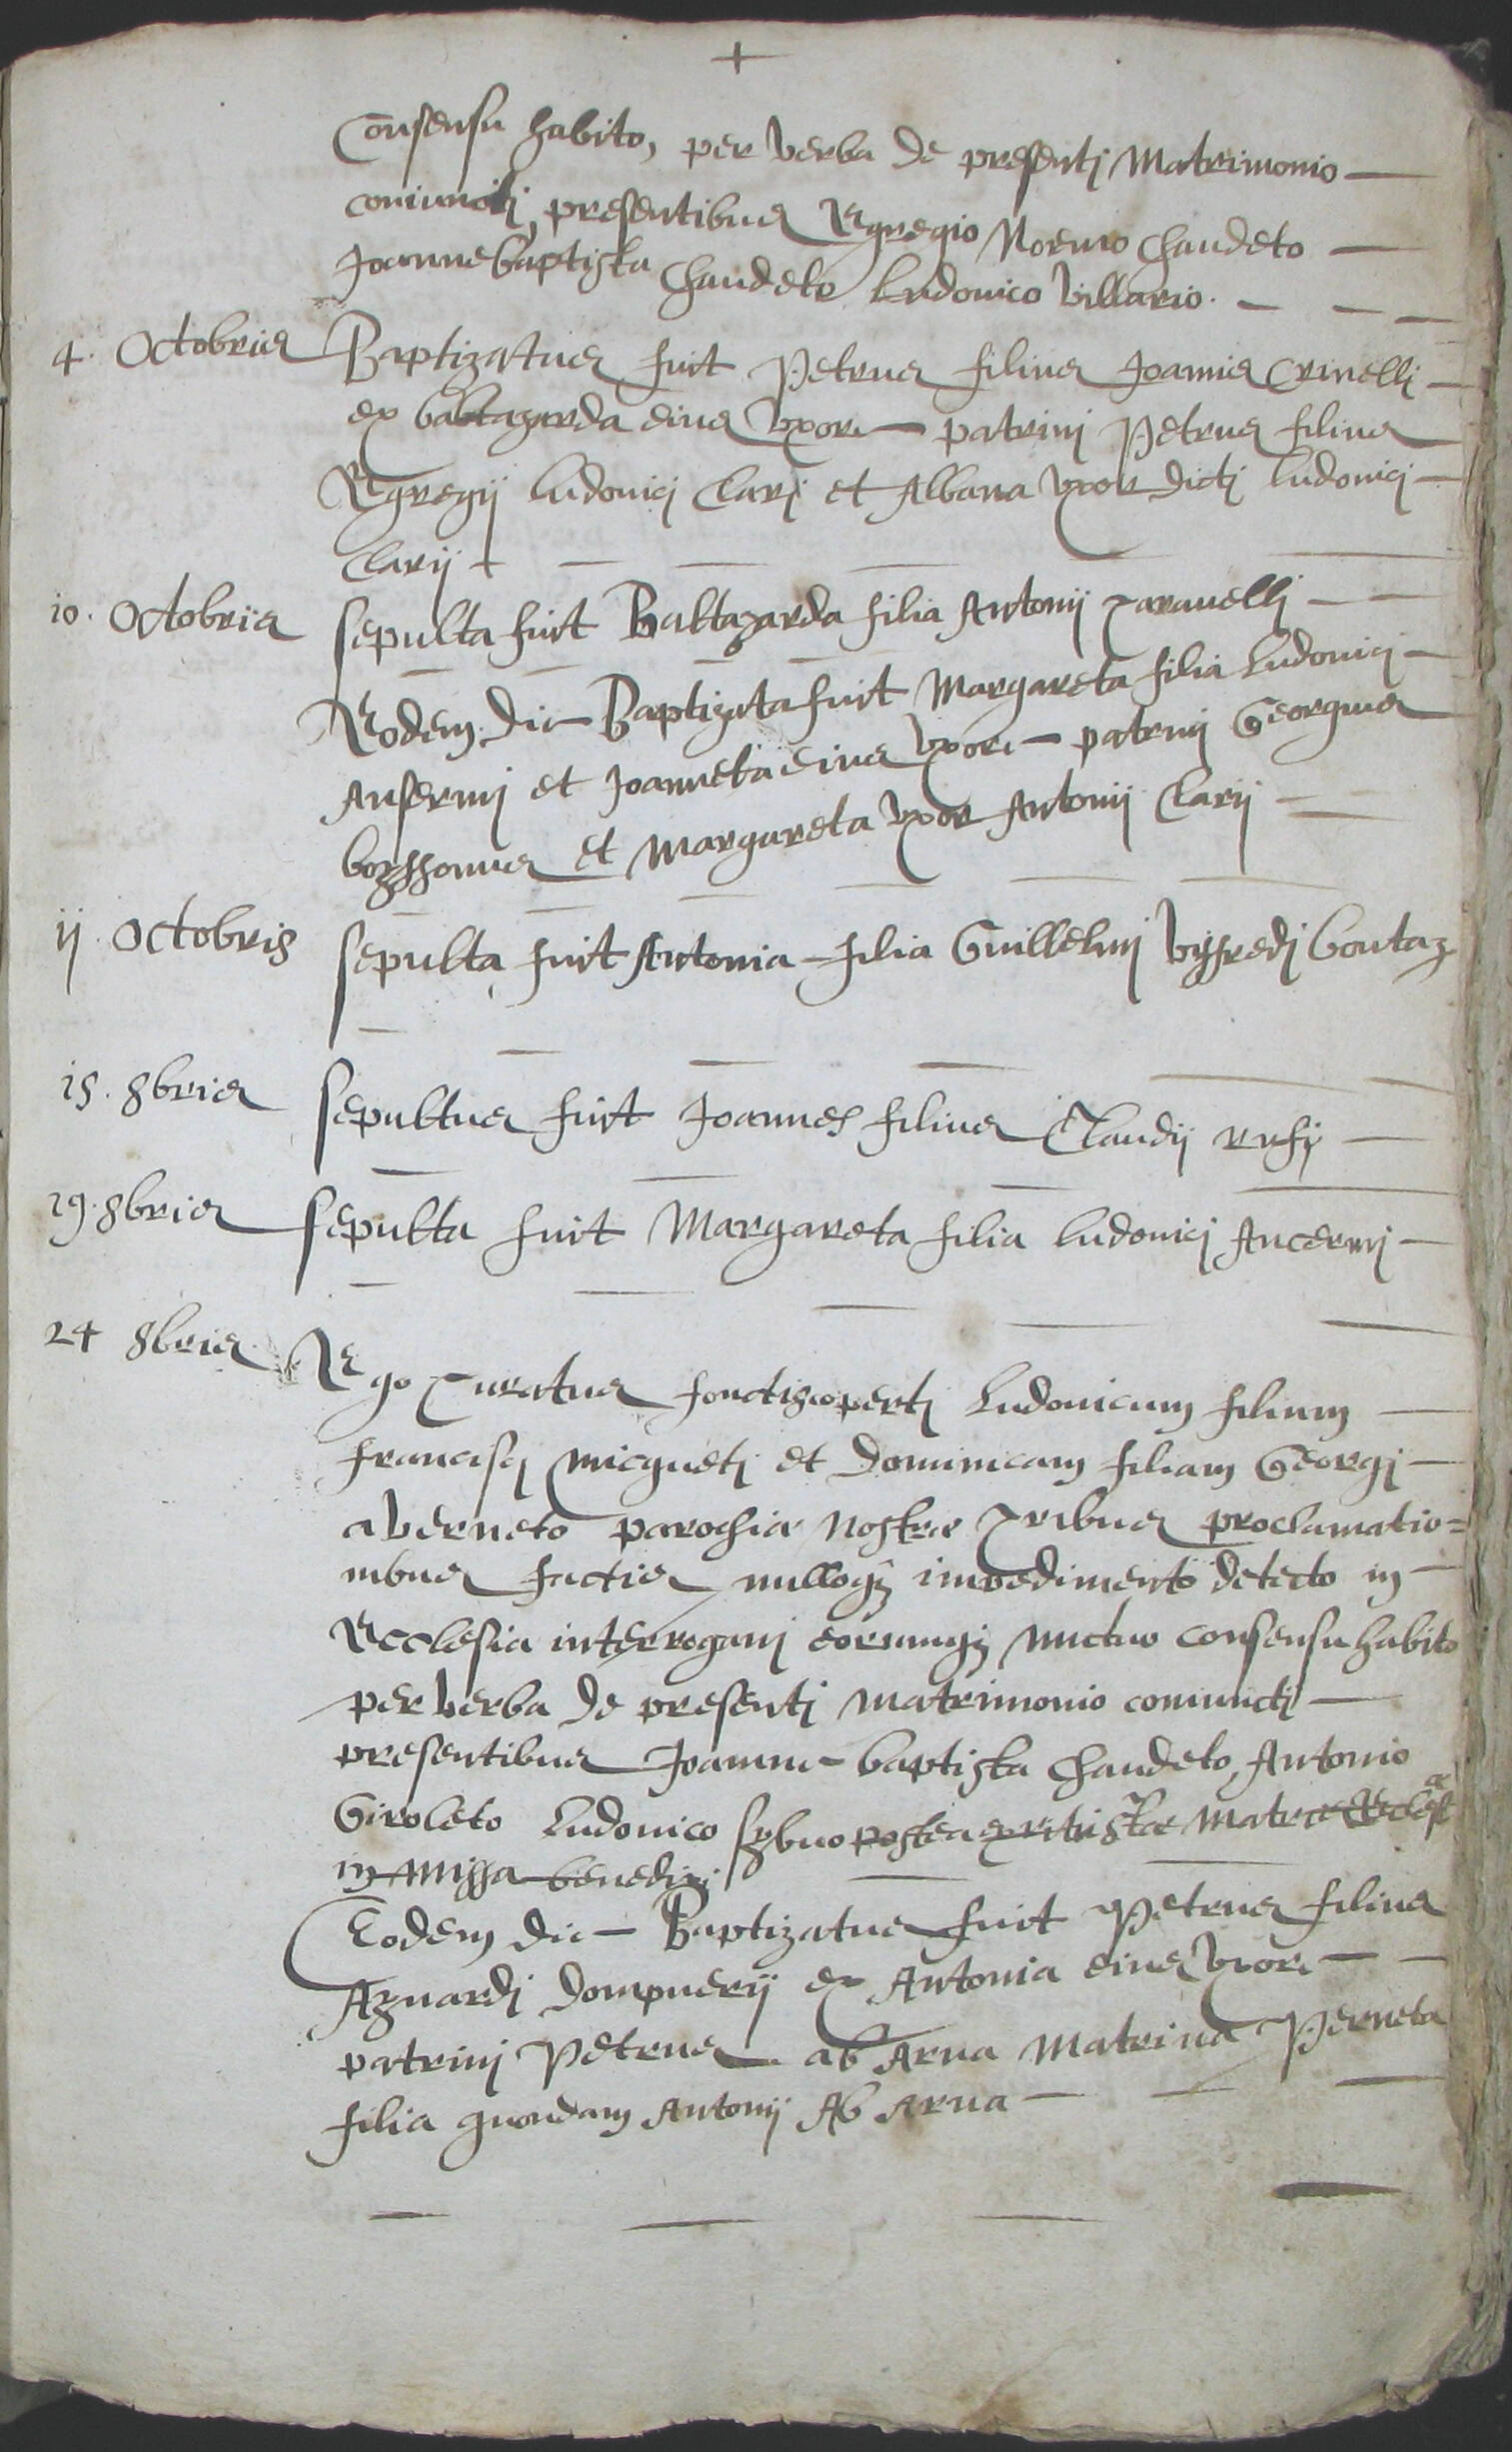 +
Consensu habito, per verba de presentj Matrimonio —
coniunctj, presentibus Egregio Noemo Chaudeto —
Joannebaptista Chaudeto Ludouico Villario. — — —
4. Octobris Baptizatus fuit Petrus filius Joannis Crinellj —
ex baltazarda eius vxore — patrinj Petrus filius
Egregij Ludouicj Clarj et Albana vxor dictj Ludouicj —
Clarij + — — — —
10. Octobris sepulta fuit Baltazarda filia Antonij Zarauellj — —
Eodem die Baptizata fuit Margareta filia Ludouicj —
Ansermj et Joanneta eius vxore — patrinj Georgius
bozssonus et Margareta vxor Antonij Clarij —
ij Octobris sepulta fuit Antonia filia Guillelmj Vyffredj Contaz
15. 8bris sepultus fuit Joannes filius Claudij rufj —
19. 8bris sepulta fuit Margareta filia Ludouicj Ancermj —
24 8bris Ego Curatus Ludouicum filium —
Francisj micguetj et Dominicam filiam Georgj —
a Verneto parochiæ nostræ Tribus proclamatio=
nibus factis nulloq3 impedimento detecto in —
Ecclesia interrogauj eorumq3 mutuo consensu habito
per verba de presentj matrimonio coniunctj —
presentibus Joanne baptista Chaudeto, Antonio
Giroleto Ludouico postea matris Eccles
in missa benedixi
Eodem die — Baptizatus fuit Petrus filius
Aymardj dompnerij ex Antonia eius vxore — —
patrinj Petrus ab Arua Matrina Perneta
filia quondam Antonij Ab Arua — — —